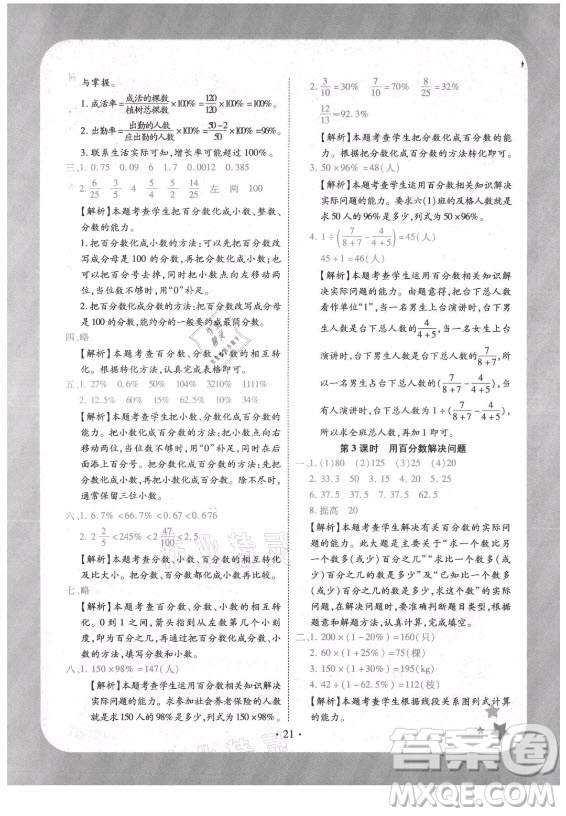 与掌握。
1. 成活率=成活的棵数/植树总棵数×100%=120/120×100%=100%
2. 出勤率=出勤的人数/应出勤的人数×100%=50-2/50×100%=96%。
3. 联系生活实际可知，增长率可能超过100%。
三、1. 0.75 0.09 1.6 0.0012 3.85
2. 6/25 3/25 4 1/2 5/4 左 两 100
【解析】本题考查学生把百分数化成小数、整数、
分数的能力。
1. 把百分数化成小数的方法：可以先把百分数
改写成分母是 100 的分数，再把分数化成小数；
也可以把百分号去掉，同时小数点向左移动两
位，当位数不够时，用“0”补足。
2. 把百分数化成分数的方法：把百分数改写成分
母是 100 的分数，能约分的一般要约成最简分数。
四、略
【解析】本题考查分数、小数、百分数的相互转
化。根据转化方法，认真填写表格即可。
五、1. 27% 33% 210% 3240% 1111%
2. 12.5% 60% 18% 225% 16%
【解析】本题考查学生把小数、分数化成百分数
的能力。
1. 把小数化成百分数的方法：可以把小数化成
分母是 100 的分数，再把分数化成百分数；也可
以把小数点向右移动两位，当位数不够时，用“0”
补足，同时在后面添上百分号。
2. 把分数化成百分数的方法：可以先把分数改
写成分母是 100 的分数，再把分子写出来，在后
面添上百分号；也可以把分数化成小数，再把小
数化成百分数，当分子除以分母除不尽时，通常
保留三位小数。
六、1. 6.7%<66.7%<0.67<0.676
2. 2 2/5<245%<2 47/100<2.5
【解析】本题考查小数、分数、百分数的相互转
化及比大小。把分数、百分数都化成小数再比较。
七、略
【解析】本题考查百分数、分数、小数的相互转化
方法。0 到 1 之间，箭头指到大刻度后面的几小刻
度，即为百分之几，再利用百分数化成分数、小数的
方法，填写分数和小数。
八、1. 150×98%=147(人)
【解析】本题考查学生运用百分数知识解决实际
问题的能力。求参加社会养老保险的人数，就是
求 150 人的 98%是多少，列式为 150×98%。
2. 3/10=30% 7/20=35% 8/25=32%
12/13≈92.3%
【解析】本题考查学生把分数化成百分数的能
力。根据把分数化成百分数的方法转化即可。
3. 50×96%=48(人)
【解析】本题考查学生运用百分数相关知识解决
实际问题的能力。要求六(1)班的及格人数就是
求 50 人的 96%是多少，列式为 50×96%。
4. 1÷(7/8+7-4/4+5)=45(人)
45+1=46(人)
【解析】本题考查学生运用百分数相关知识解决
实际问题的能力。由题意得，把台下总人数
看作单位“1”，当一名男生上台演讲时，
台下男生人数是台下总人数的4/4+5，当一名女生上台
演讲时，台下男生人数是台下总人数的7/8+7，所
以一名男生占台下总人数的7/8+7-4/4+5，所以当
有人演讲时，台下总人数为 1÷(7/8+7-4/4+5)，
所以求全班总人数再加 1 即可。
第3课时 用百分数解决问题
一、1. (1)80 (2)125 (3)25 (4)20
3. 97.5% 4. 150 5. 13.3 6. 24 7. 38
8. 提高 20
【解析】本题考查学生解决有关百分数的实际问
题的能力。此大题主要是关于“求一个数比另一
个数多(或少)百分之几”“求比一个数多(或少)百分之几的数是多少”“已知比一个数
多(或少)百分之几的数是多少，求这个数”等题
型，解决时，要准确判断题目类型，根据
题意和解题方法，认真计算完成填空。
二、1. 200×(1-20%)=160(只)
2. 60×(1+25%)=75(棵)
3. 150×(1+30%)=195(kg)
4. 42÷(1-62.5%)=112(枝)
【解析】本题考查学生根据线段关系图列式计算
的能力。
· 21 ·
作业精灵
答案圈
MXQE.COM